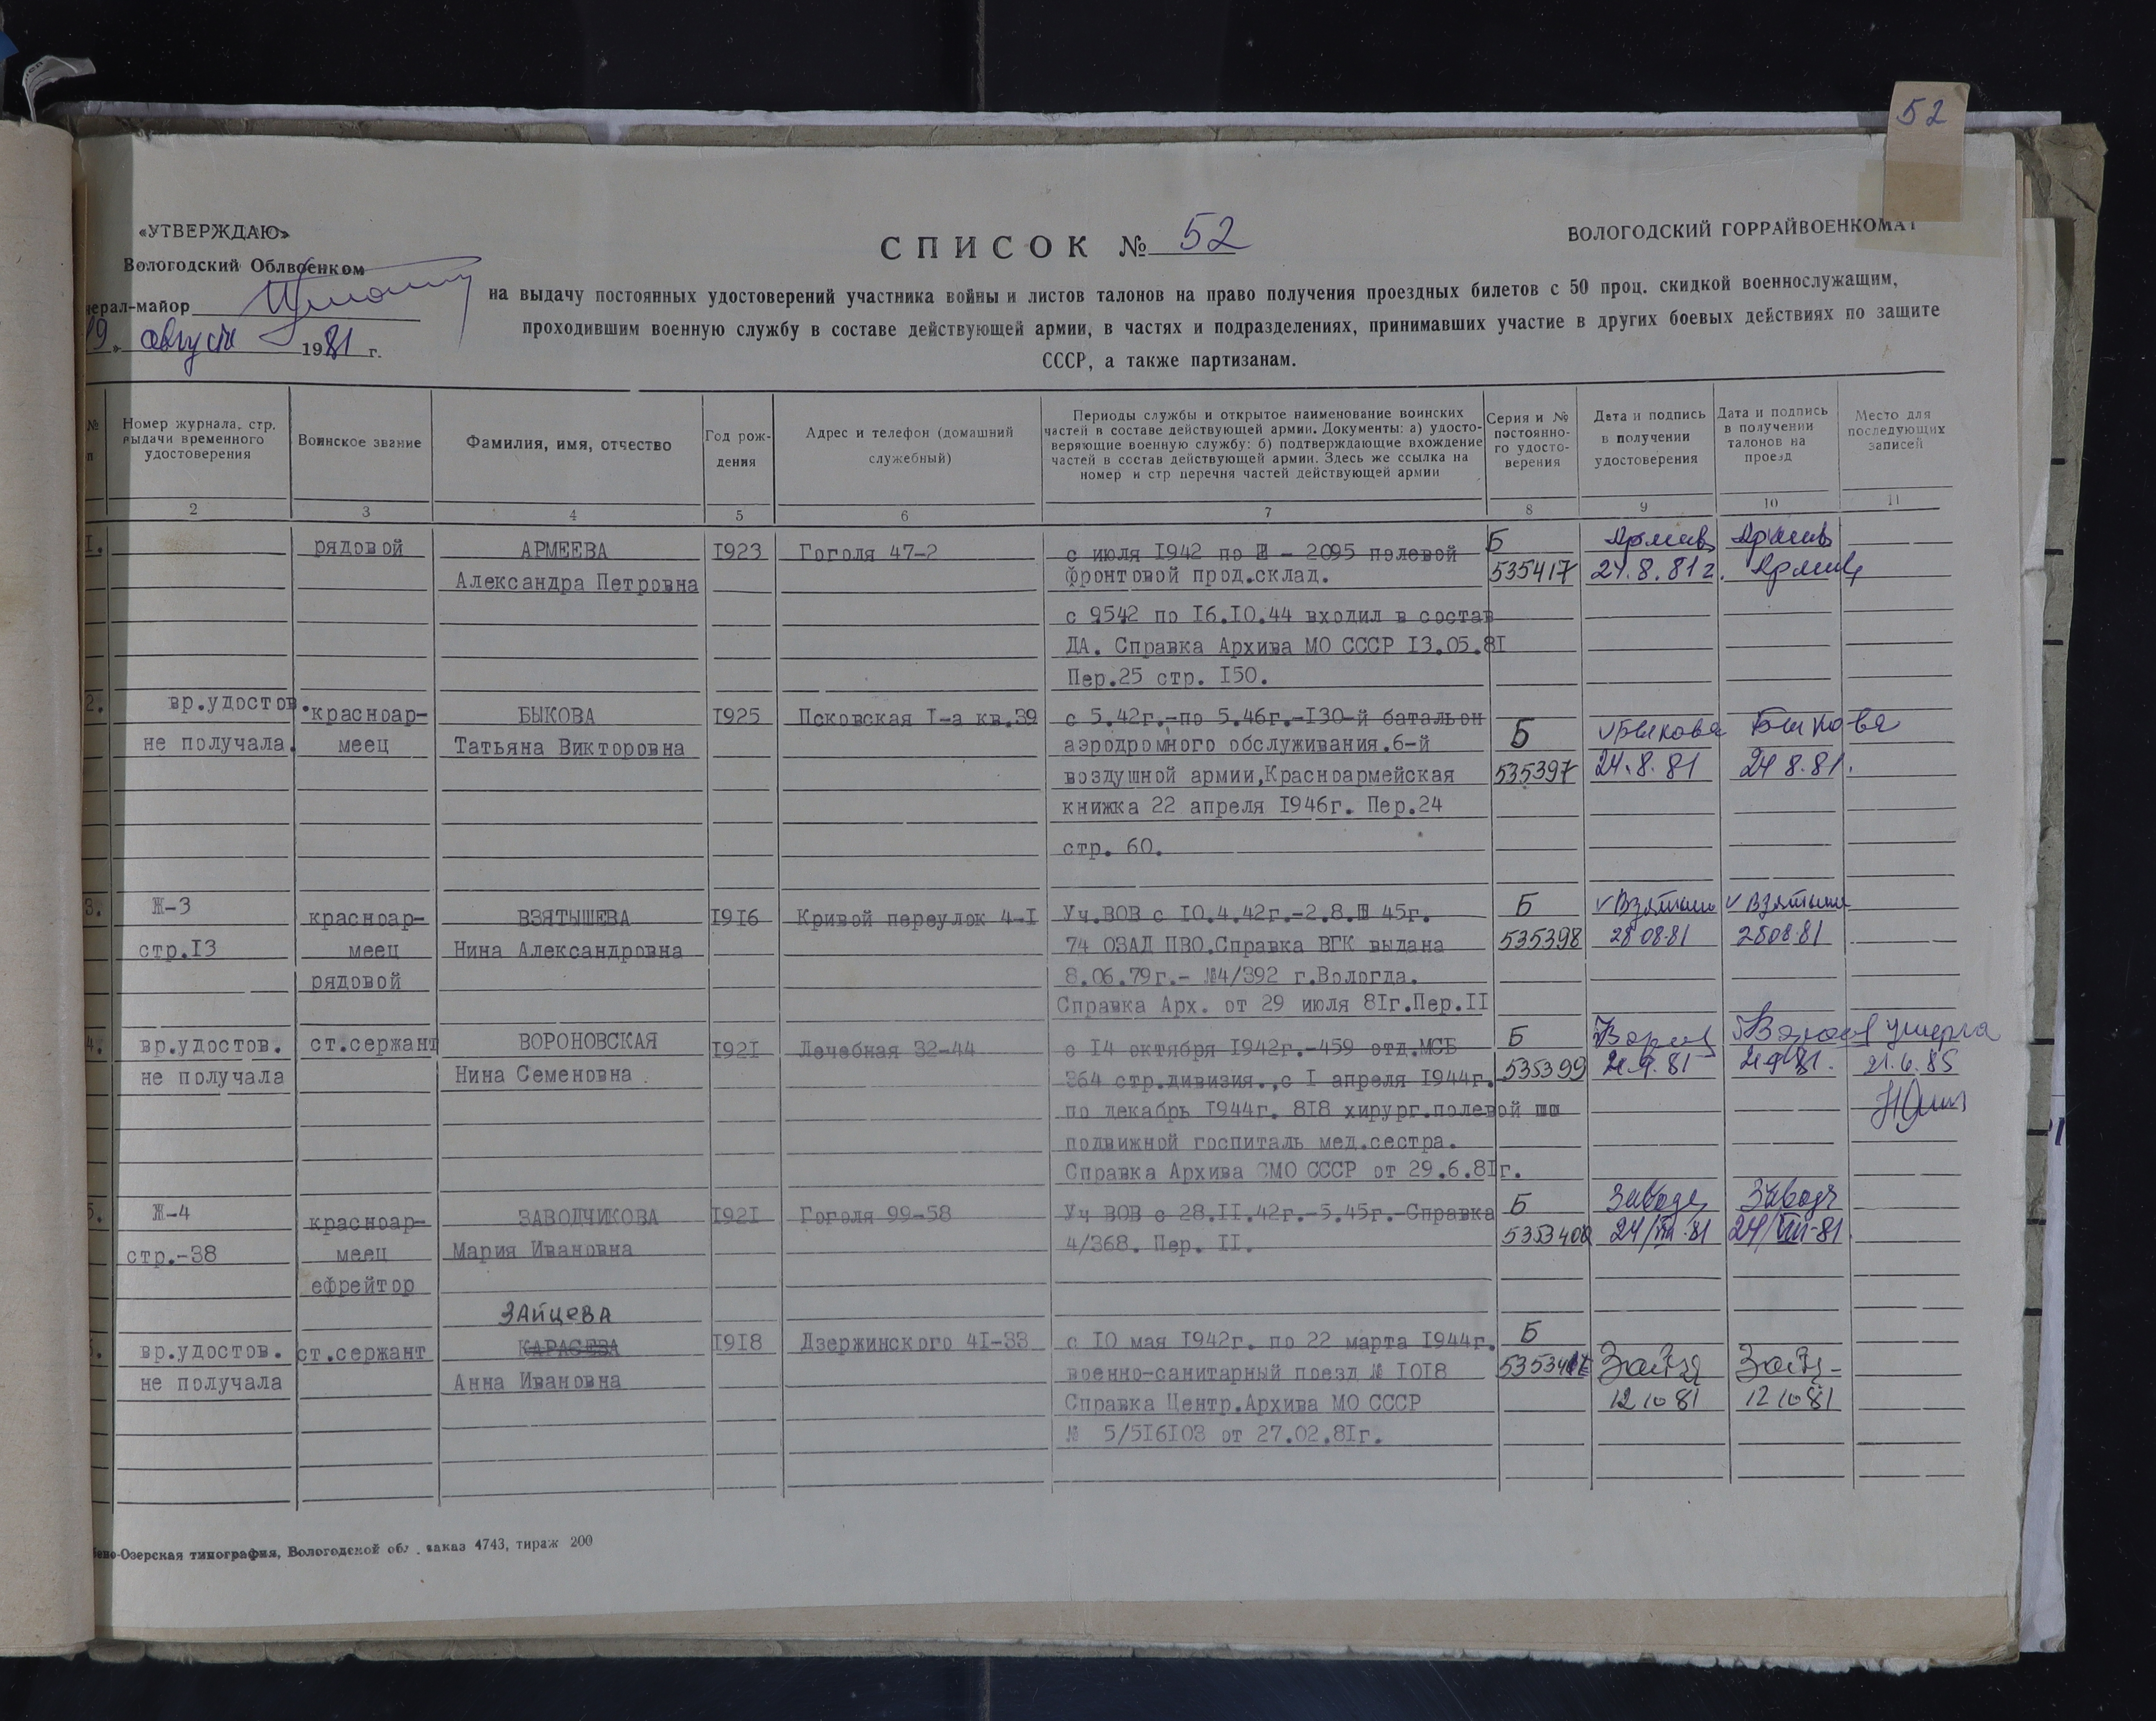 52
«УТВЕРЖДАЮ»
Вологодский Облвоенком
нерал-майор
19 » августа 1981 г.
СПИСОК № 52
ВОЛОГОДСКИЙ ГОРРАЙВОЕНКОМАТ
на выдачу постоянных удостоверений участника войны и листов талонов на право получения проездных билетов с 50 проц. скидкой военнослужащим,
проходившим военную службу в составе действующей армии, в частях и подразделениях, принимавших участие в других боевых действиях по защите
СССР, а также партизанам.
№ п
Номер журнала, стр. выдачи временного удостоверения
Воинское звание
Фамилия, имя, отчество
Год рож-
дения
Адрес и телефон (домашний
служебный)
Периоды службы и открытое наименование воинских
частей в составе действующей армии. Документы: а) удосто-
веряющие военную службу: б) подтверждающие вхождение
частей в состав действующей армии. Здесь же ссылка на
номер и стр перечня частей действующей армии
Серия и №
постоянно-
го удосто-
верения
Дата и подпись
в получении
удостоверения
Дата и подпись
в получении
талонов на
проезд
Место для
последующих
записей
2 3 4 5 6 7 8 9 10 11
I. рядовой АРМЕЕВА I923 Гоголя 47-2 с июля I942 по - 2095 полевой Б
Александра Петровна фронтовой прод.склад. 535417 24.8.81г.
с 9542 по I6.I0.44 входил в состав
ДА. Справка Архива МО СССР I3.05.8I
Пер.25 стр. I50.
2. вр.удостов. красноар- БЫКОВА I925 Псковская I-а кв.39 с 5.42г.-по 5.46г.-I30-й батальон Быкова Быкова
не получала. меец Татьяна Викторовна аэродромного обслуживания.6-й Б
воздушной армии,Красноармейская 535397 24.8.81 24 8.81.
книжка 22 апреля I946г. Пер.24
стр. 60.
3. Ж-3 красноар- ВЗЯТЫШЕВА I9I6 Кривой переулок 4-I Уч.ВОВ с I0.4.42г.-2.8. 45г. Б
стр.I3 меец Нина Александровна 74 ОЗАД ПВО.Справка ВГК выдана 535398 28 08.81 2808.81
рядовой 8.06.79г.- №4/392 г.Вологда.
Справка Арх. от 29 июля 8Iг.Пер.II
4. вр.удостов. ст.сержант ВОРОНОВСКАЯ I92I Лечебная 32-44 с I4 октября I942г.-459 отд.МСБ Б умерла
не получала Нина Семеновна 364 стр.дивизия.,с I апреля I944г. 535399 21.6.85
по декабрь I944г. 8I8 хирург.полевой
подвижной госпиталь мед.сестра.
Справка Архива МО СССР от 29.6.8Iг.
5. Ж-4 красноар- ЗАВОДЧИКОВА I92I Гоголя 99-58 Уч ВОВ с 28.II.42г.-5.45г.-Справка Б
стр.-38 меец Мария Ивановна 4/368. Пер. II. 24/VIII.81 24/VIII-81
ефрейтор
ЗАЙЦЕВА
вр.удостов. ст.сержант КАРАСЕВА I9I8 Дзержинского 4I-33 с I0 мая I942г. по 22 марта I944г. Б
не получала Анна Ивановна военно-санитарный поезд № I0I8
Справка Центр.Архива МО СССР 12 10 81 12 10 81
№ 5/5I6I03 от 27.02.8Iг.
Озерская типография, Вологодской обл. заказ 4743, тираж 200